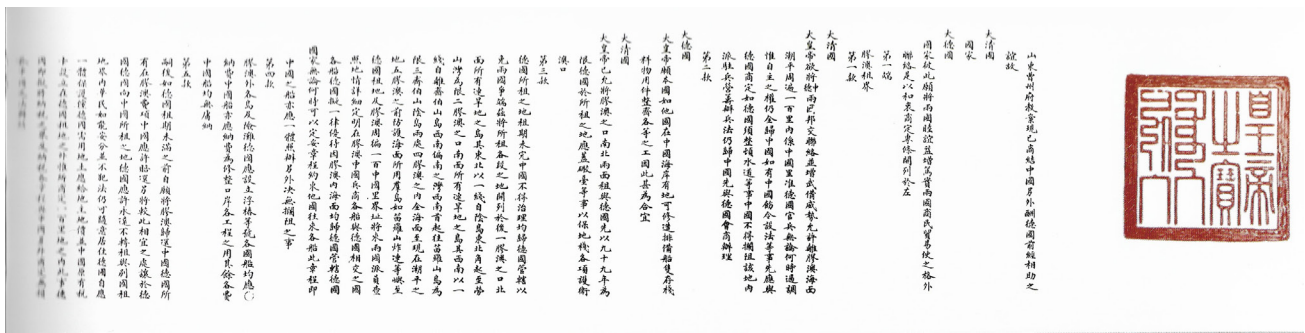 皇帝之寶
山東曹州府教案現已商結中國另外酬德國前經相助之
誼故
大清國
國家
大德國
國家彼此願將兩國睦誼益增篤實兩國商民貿易使之格外
聯絡是以和衷商定專條開列於左
第一端
膠澳租界
第一款
大清國
大皇帝欲將中德兩國邦交聯絡並增武備威勢允許離膠澳海面
潮平周遍一百里內係中國里准德國官兵無論何時過調
惟自主之權仍全歸中國如有中國飭令設法等事先應與
德國商定如德國須整頓水道等事中國不得攔阻該地內
派駐兵營籌辦兵法仍歸中國先與德國會商辦理
第二款
大德國
大皇帝願本國如他國在中國海岸有地可修造排備船隻存棧
料物用件整齊各等之工因此甚為合宜
大清國
大皇帝已允將膠澳之口南北兩面租與德國先以九十九年為
限德國於所租之地應蓋礮臺等事以保地棧各項護衛
澳口
第三款
德國所租之地租期未完中國不得治理均歸德國管轄以
免兩國爭端茲將所租各段之地開列於後一膠澳之口北
面所有連旱地之島其東北以一綫自陰島東北角起至勞
山灣為限二膠澳之口南面所有連旱地之島其西南以一
綫自離齊伯山島西南偏南之灣西南首起往笛羅山島為
限三齊伯山陰島兩處四膠澳之內全海面至現在潮平之
地五膠澳之前防護海面所用羣島如笛羅山炸連等嶼至
德國租地及膠澳周徧一百中國里界址將來兩國派員查
照地情詳細定明在膠澳中國兵商各船與德國相交之國
各船德國擬一律優待因膠澳內海面均歸德國管轄德國
國家無論何時可以定妥章程約束他國往來各船此章程即
中國之船亦應一體照辦另外决無攔阻之事
第四款
膠澳外各島及險灘德國應設立浮樁等號各國船均應
納費中國船亦應納費為修整口岸各工程之用其餘各費
中國船均無庸納
第五款
嗣後如德國租期未滿之前自願將膠澳歸還中國德國所
有在膠澳費項中國應許賠還另將較此相宜之處讓於德
國德國向中國所租之地德國應許永遠不轉租與別國租
地界內華民如能安分並不犯法仍可隨意居住德國自應
一體保護儻德國需用地土應給地主地價並中國原有稅
卡設立在德國租地之外惟所商定一百里地之內此事德